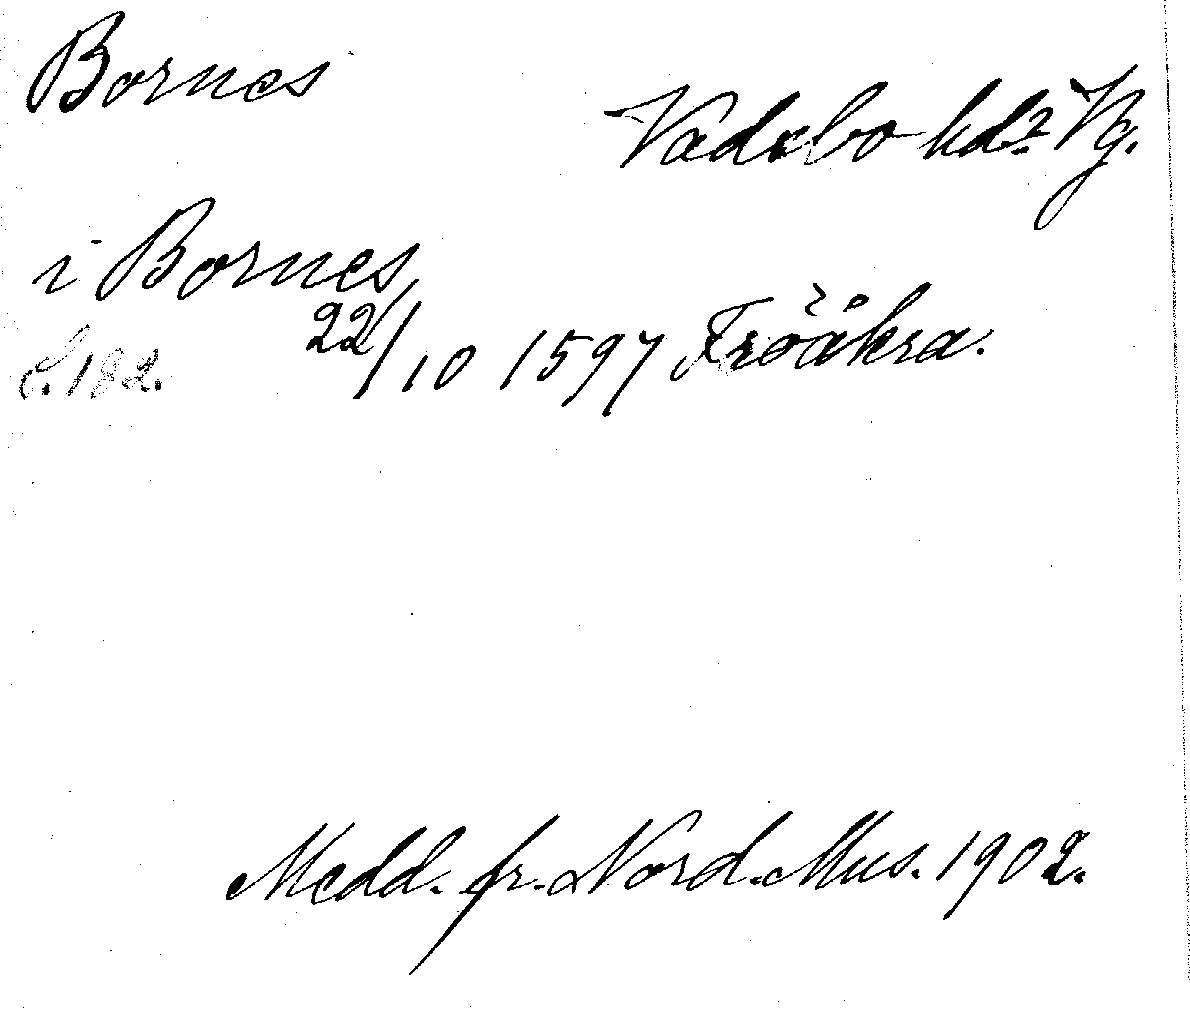 Bornes
Vadsbo hd Vg.
i Bornes,
22/10 1597 Fröåkra.
S. 182.
Medd. fr. Nord. Mus. 1902.